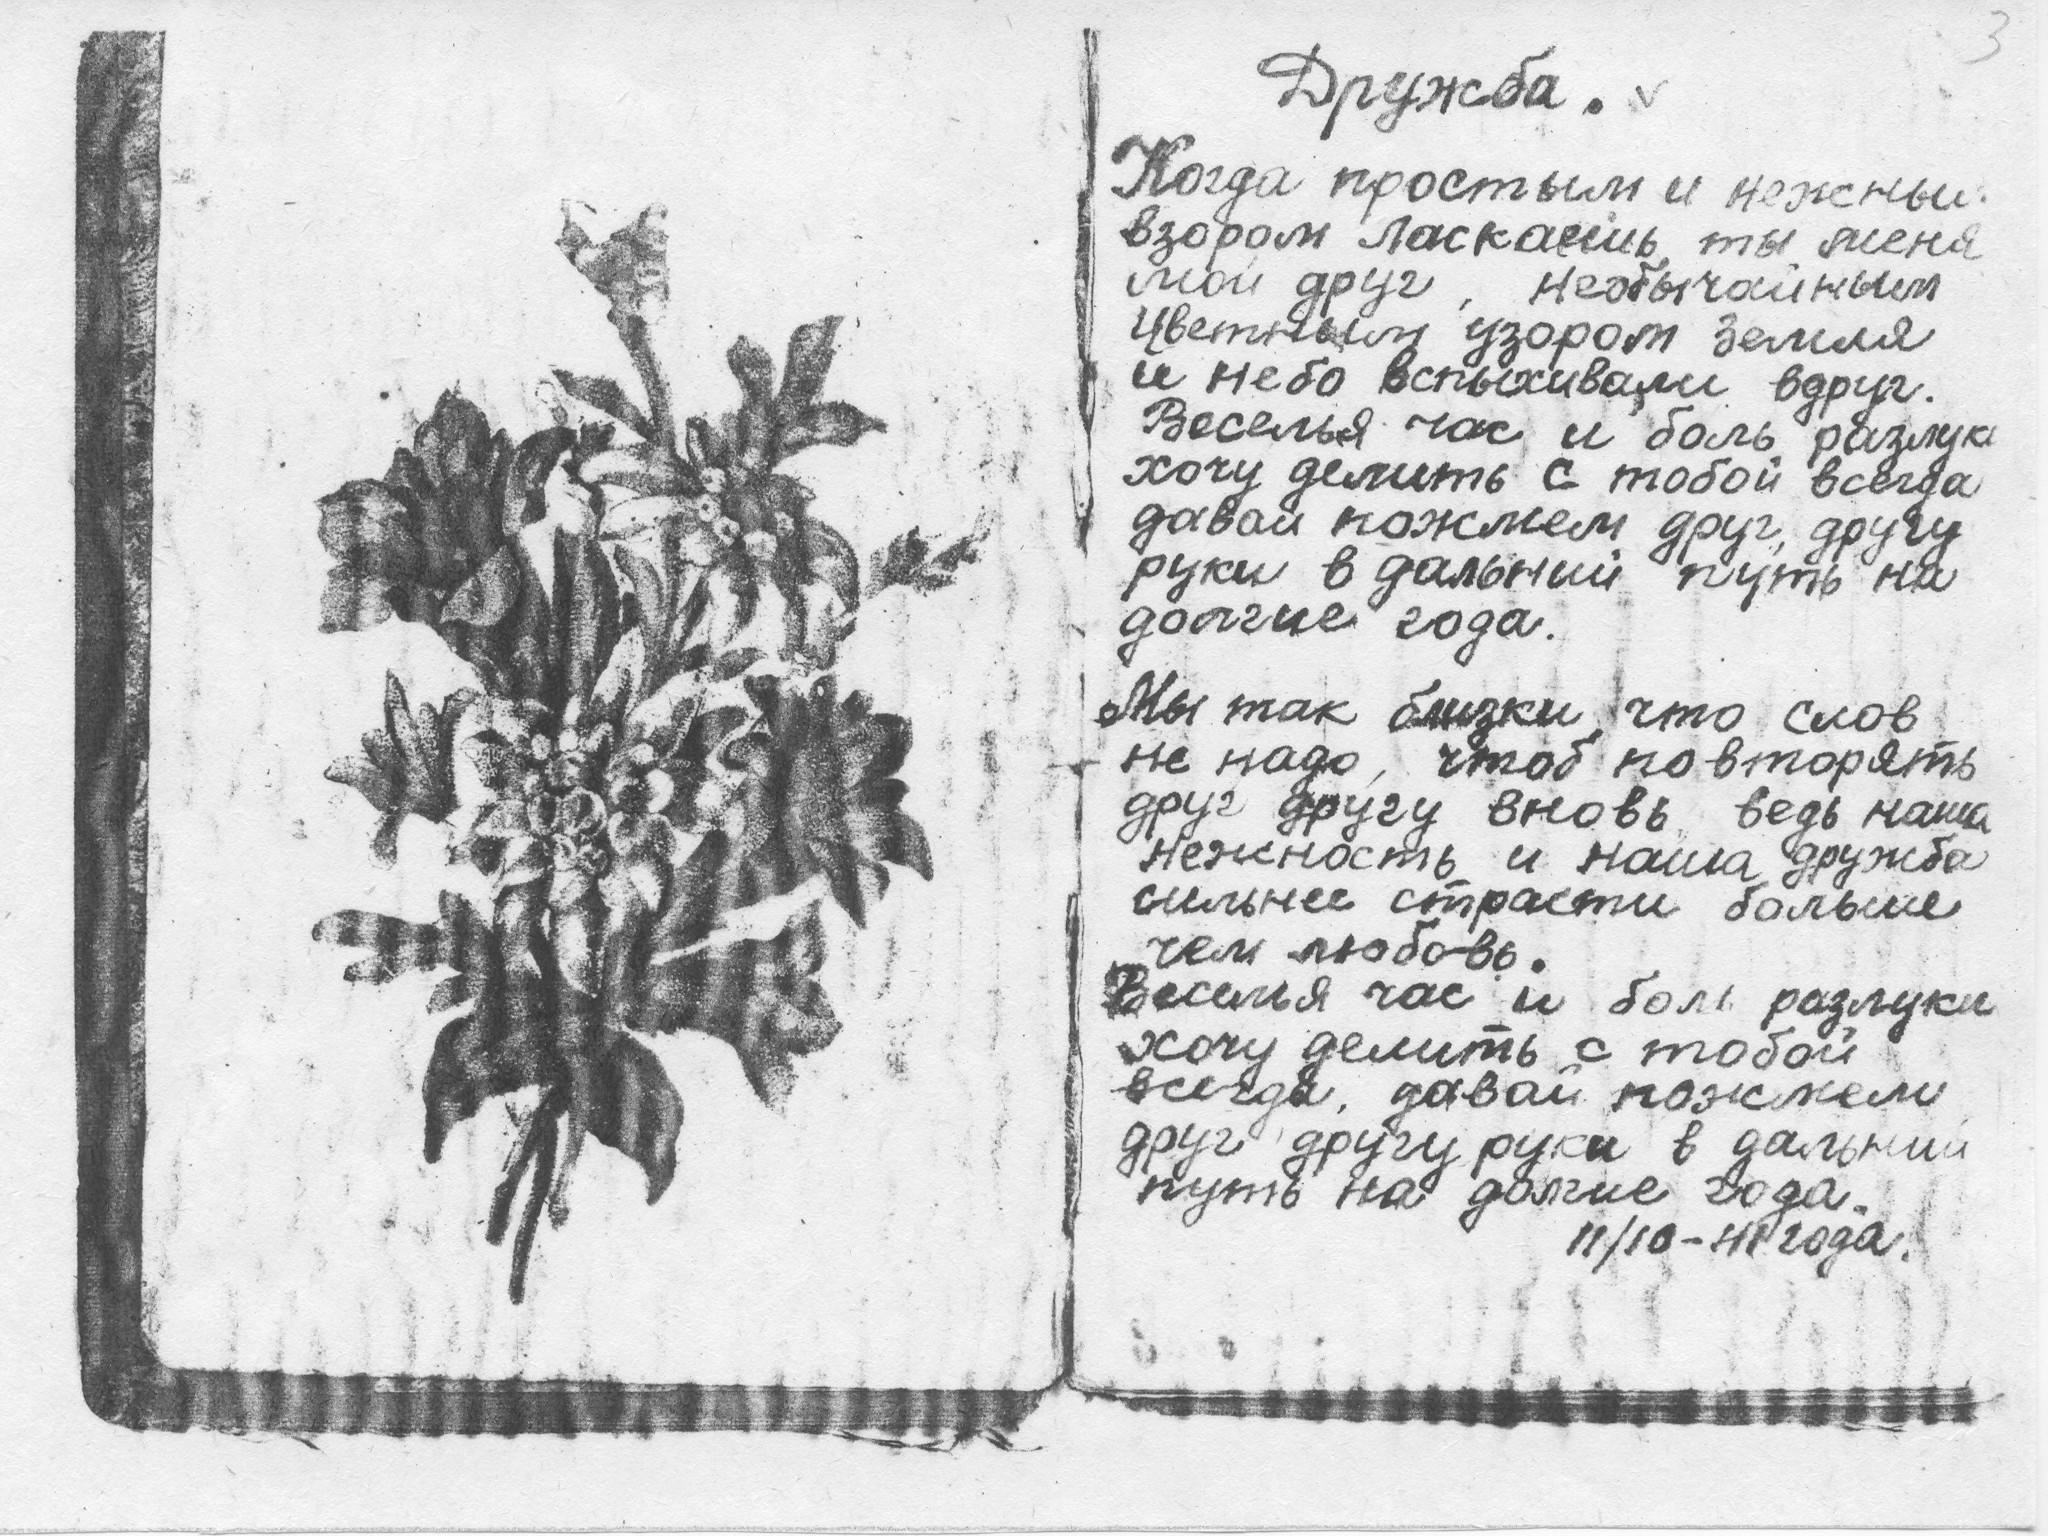 3
Дружба.
Когда простым и нежным
взором ласкаешь ты меня
мой друг, необычайным
цветным узором земля
и небо вспыхивали вдруг.
Веселья час и боль разлуки
хочу делить с тобой всегда
давай пожмем друг, другу
руки в дальний путь на
долгие года.
Мы так близки, что слов
не надо, чтоб повторять
друг другу вновь ведь наша
нежность и наша дружба
сильнее страсти больше
чем любовь.
Веселья час и боль разлуки
хочу делить с тобой
всегда, давай пожмем
друг другу руки в дальний
путь на долгие года.
11/10-41 года.